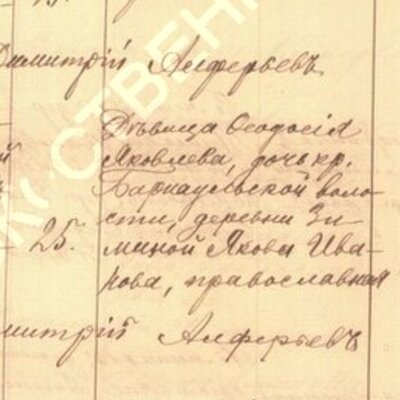 Димитрій Алферьевъ
Дѣвица Ѳеодосія
Яковлева, дочь кр.
Барнаульской воло-
сти, деревни Зи
25. миной Якова Ива-
нова, православная
митрій Алферьевъ